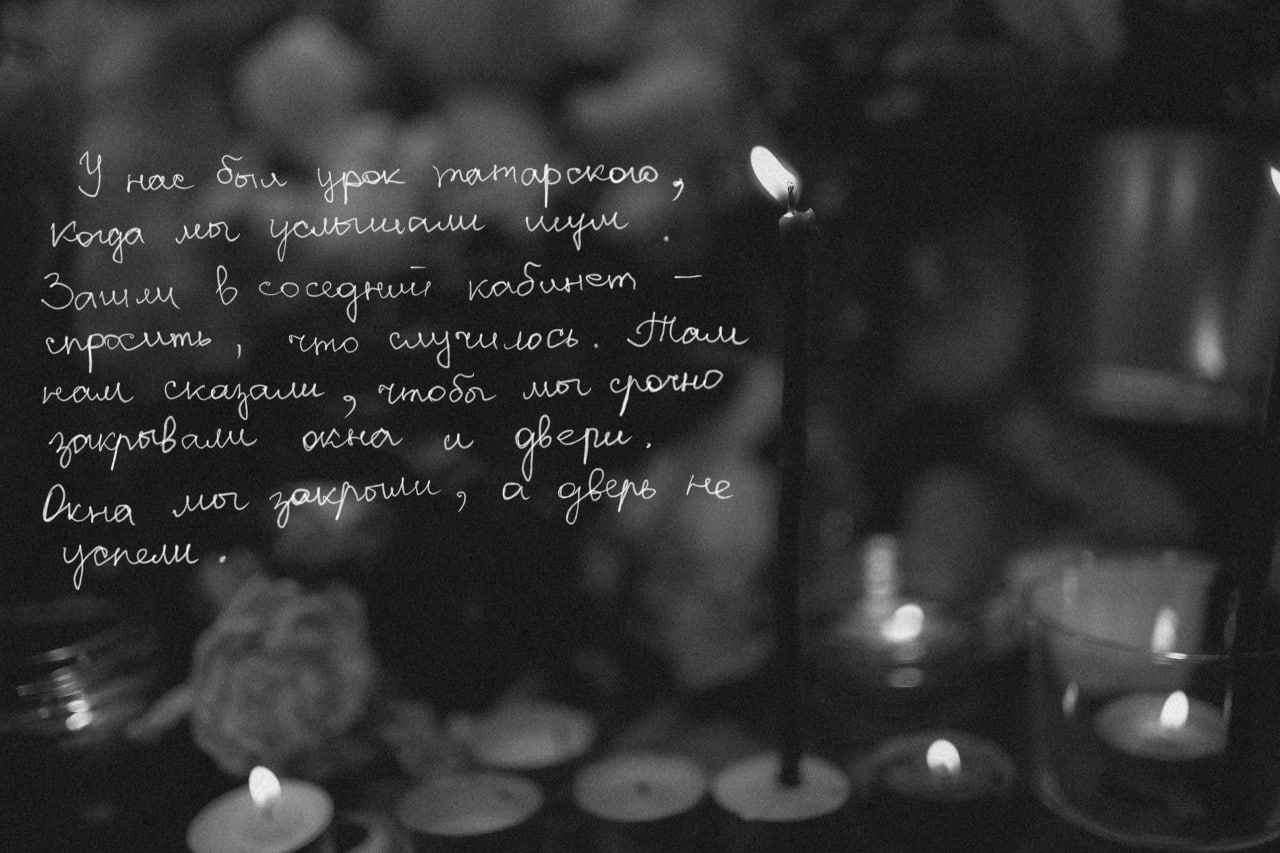 У нас был урок татарского,
когда мы услышали шум.
Зашли в соседний кабинет —
спросить, что случилось. Там
нам сказали, чтобы мы срочно
закрывали окна и двери.
Окна мы закрыли, а дверь не
успели.